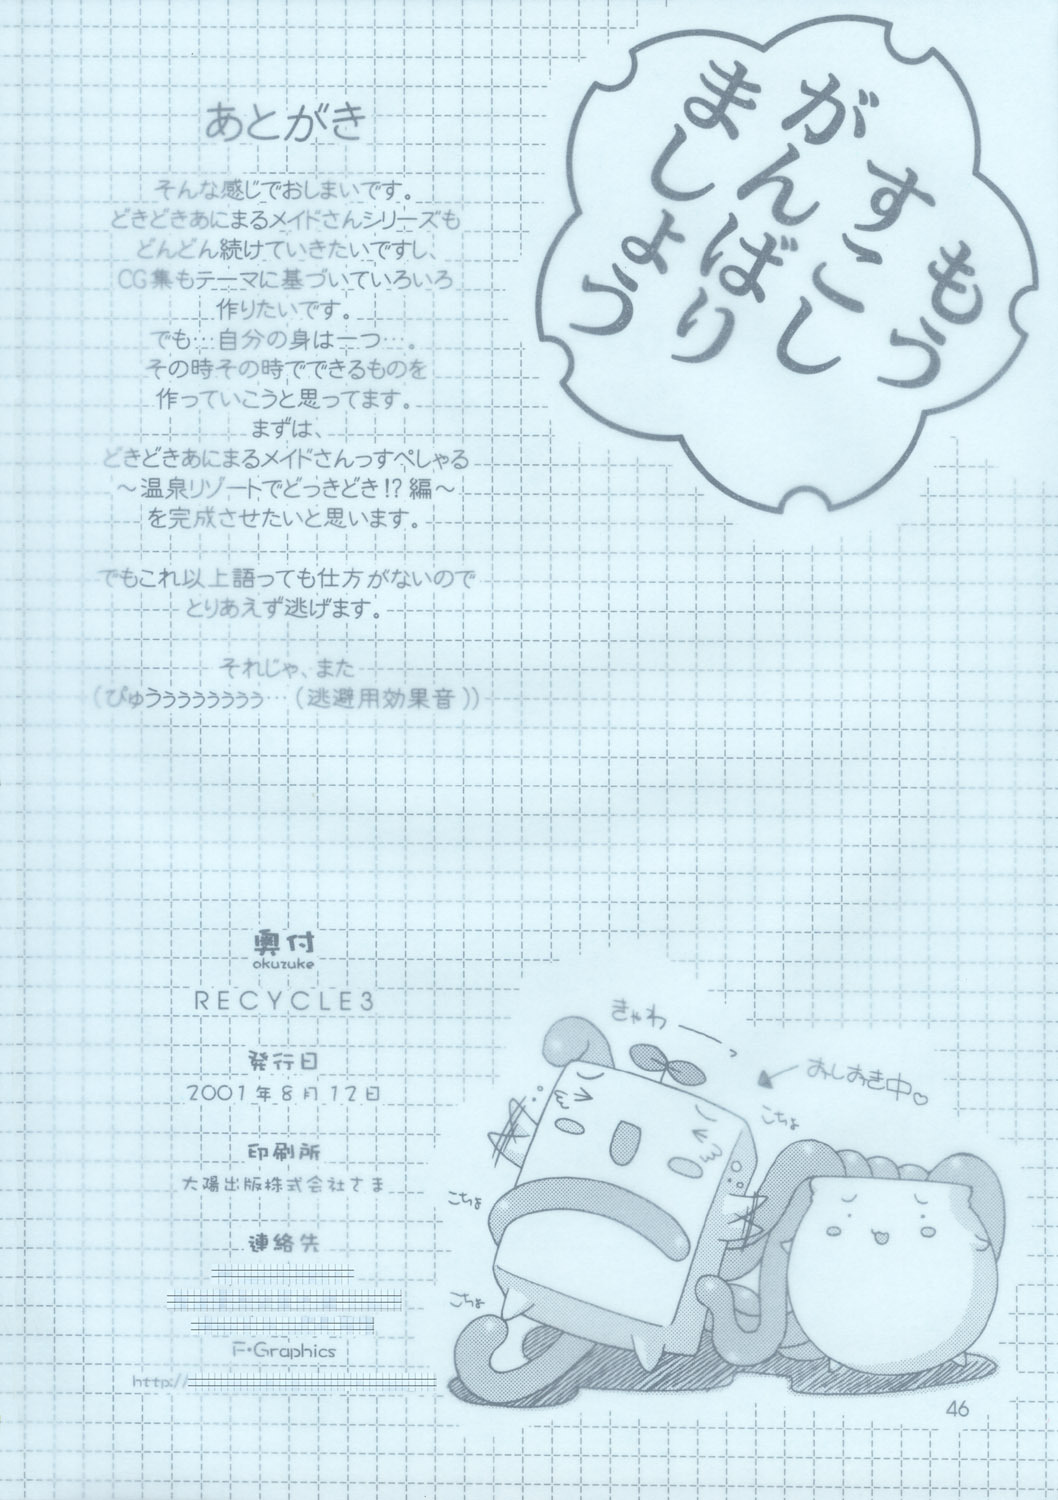 もう
すこし
がんばり
ましょう
あとがき
そんな感じでおしまいです。
どきどきあにまるメイドさんシリーズも
どんどん続けていきたいですし、
CG集もテーマに基づいていろいろ
作りたいです。
でも…自分の身は一つ…。
その時その時でできるものを
作っていこうと思ってます。
まずは、
どきどきあにまるメイドさんっすぺしゃる
～温泉リゾートでどっきどき!?編～
を完成させたいと思います。
でもこれ以上語っても仕方がないので
とりあえず逃げます。
それじゃ、また
(ぴゅうぅぅぅぅぅぅぅ…(逃避用効果音))
奥付
okuzuke
RECYCLE3
発行日
2001年8月12日
印刷所
大陽出版株式会社さま
連絡先
F・Graphics
http://
きゃわーっ
おしおき中♡
こちょ
こちょ
こちょ
46